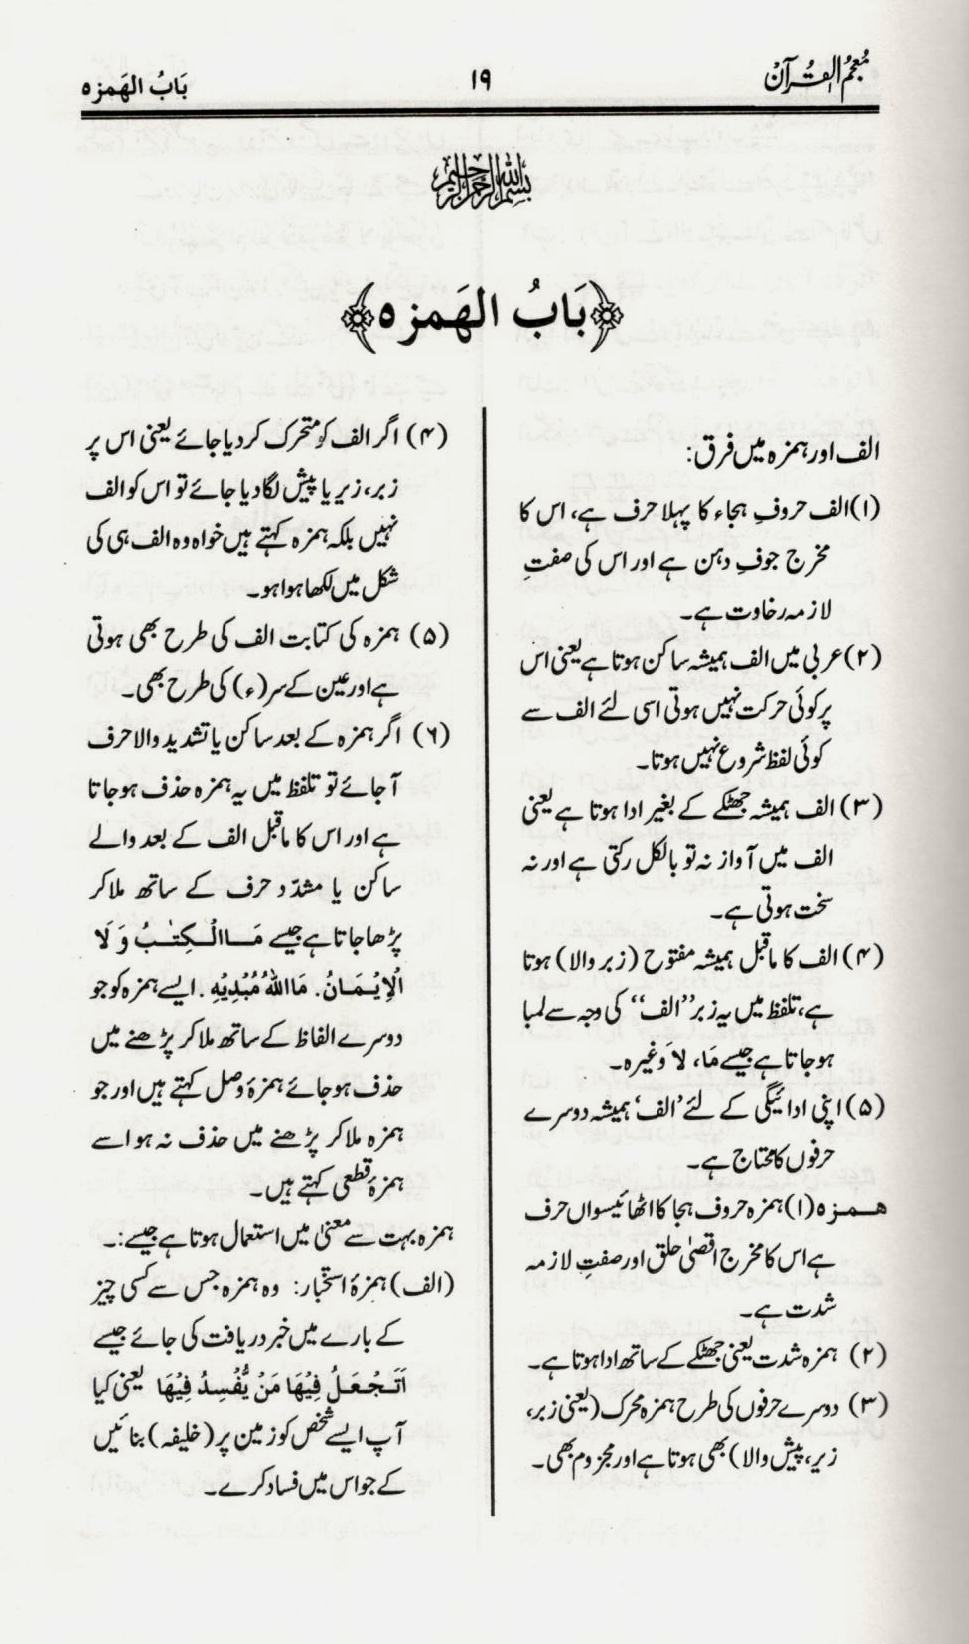 معجم القرآن
۱۹
بَابُ الهَمزہ
بسم اللہ الرحمن الرحیم
﴿بَابُ الهَمزہ﴾
الف اور ہمزہ میں فرق:
(۱) الف حروفِ ہجاء کا پہلا حرف ہے، اس کا
مخرج جوفِ دہن ہے اور اس کی صفتِ
لازمہ رخاوت ہے۔
(۲) عربی میں الف ہمیشہ ساکن ہوتا ہے یعنی اس
پر کوئی حرکت نہیں ہوتی اسی لئے الف سے
کوئی لفظ شروع نہیں ہوتا۔
(۳) الف ہمیشہ جھٹکے کے بغیر ادا ہوتا ہے یعنی
الف میں آواز نہ تو بالکل رکتی ہے اور نہ
سخت ہوتی ہے۔
(۴) الف کا ماقبل ہمیشہ مفتوح (زبر والا) ہوتا
ہے، تلفظ میں یہ زبر ”الف“ کی وجہ سے لمبا
ہو جاتا ہے جیسے مَا، لاَ وغیرہ۔
(۵) اپنی ادائیگی کے لئے ’الف‘ ہمیشہ دوسرے
حرفوں کا محتاج ہے۔
ھمزہ (۱) ہمزہ حروف ہجا کا اٹھائیسواں حرف
ہے اس کا مخرج اقصیٰ حلق اور صفتِ لازمہ
شدت ہے۔
(۲) ہمزہ شدت یعنی جھٹکے کے ساتھ ادا ہوتا ہے۔
(۳) دوسرے حرفوں کی طرح ہمزہ محرک (یعنی زبر،
زیر، پیش والا) بھی ہوتا ہے اور مجزوم بھی۔
(۴) اگر الف کو متحرک کر دیا جائے یعنی اس پر
زبر، زیر یا پیش لگا دیا جائے تو اس کو الف
نہیں بلکہ ہمزہ کہتے ہیں خواہ وہ الف ہی کی
شکل میں لکھا ہوا ہو۔
(۵) ہمزہ کی کتابت الف کی طرح بھی ہوتی
ہے اور عین کے سر (ء) کی طرح بھی۔
(۶) اگر ہمزہ کے بعد ساکن یا تشدید والا حرف
آ جائے تو تلفظ میں یہ ہمزہ حذف ہو جاتا
ہے اور اس کا ماقبل الف کے بعد والے
ساکن یا مشدّد حرف کے ساتھ ملا کر
پڑھا جاتا ہے جیسے مَا الْكِتٰبُ وَ لَا
اْلاِيْمَانُ. مَا اللهُ مُبْدِيْهِ. ایسے ہمزہ کو جو
دوسرے الفاظ کے ساتھ ملا کر پڑھنے میں
حذف ہو جائے ہمزۂ وصل کہتے ہیں اور جو
ہمزہ ملا کر پڑھنے میں حذف نہ ہو اسے
ہمزۂ قطعی کہتے ہیں۔
ہمزہ بہت سے معنیٰ میں استعمال ہوتا ہے جیسے:۔
(الف) ہمزۂ استخبار: وہ ہمزہ جس سے کسی چیز
کے بارے میں خبر دریافت کی جائے جیسے
اَتَجْعَلُ فِيْهَا مَنْ يُّفْسِدُ فِيْهَا یعنی کیا
آپ ایسے شخص کو زمین پر (خلیفہ) بنائیں
کے جو اس میں فساد کرے۔